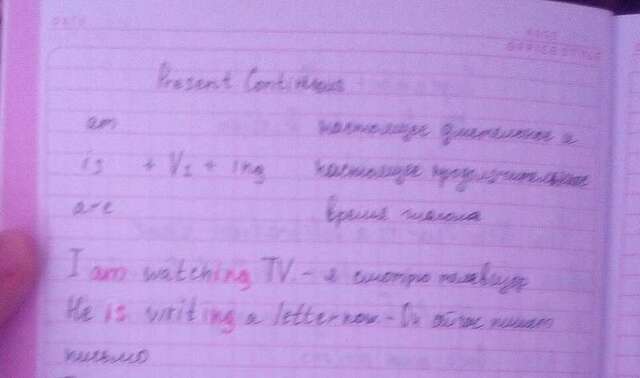 DATE
PAGE
Present Continuous
am настоящее длительное и
is + V₁ + ing настоящее продолжительное
are время глагола
I am watching TV - я смотрю телевизор
He is writing a letter now - Он сейчас пишет
письмо